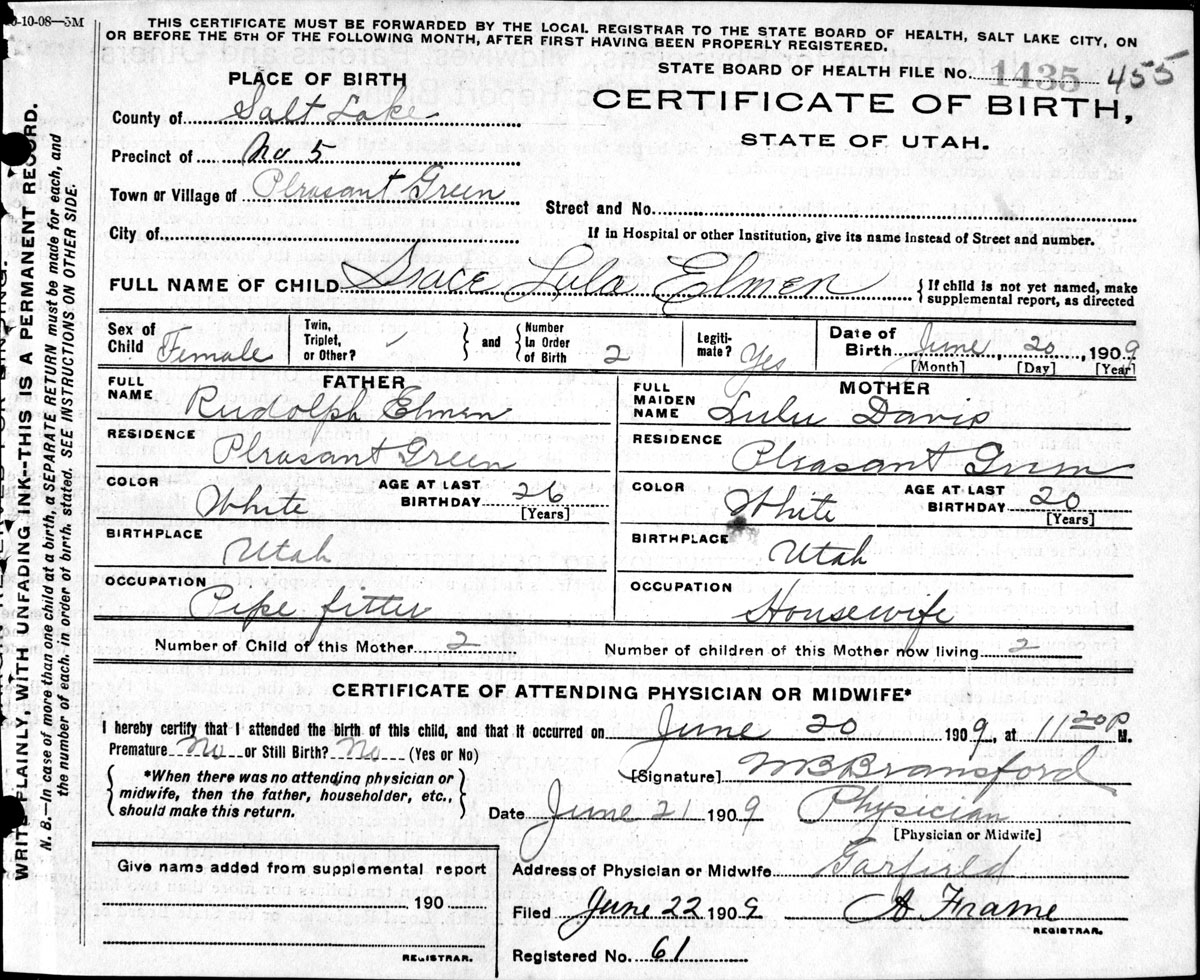 0-10-08—5M
THIS CERTIFICATE MUST BE FORWARDED BY THE LOCAL REGISTRAR TO THE STATE BOARD OF HEALTH, SALT LAKE CITY, ON
OR BEFORE THE 5TH OF THE FOLLOWING MONTH, AFTER FIRST HAVING BEEN PROPERLY REGISTERED.
STATE BOARD OF HEALTH FILE No. 1435 455
CERTIFICATE OF BIRTH,
STATE OF UTAH.
PLACE OF BIRTH
County of Salt Lake
Precinct of No 5
Town or Village of Pleasant Green
Street and No.
City of
If in Hospital or other Institution, give its name instead of Street and number.
FULL NAME OF CHILD Grace Lula Elmen
{ If child is not yet named, make
supplemental report, as directed
Sex of Child Female
Twin, Triplet, or Other? } and { Number In Order of Birth 2
Legiti-mate? Yes
Date of Birth June, 20, 1909
[Month] [Day] [Year]
FATHER
FULL NAME Rudolph Elmen
RESIDENCE Pleasant Green
COLOR White
AGE AT LAST BIRTHDAY 26
[Years]
BIRTHPLACE Utah
OCCUPATION Pipe fitter
MOTHER
FULL MAIDEN NAME Lulu Davis
RESIDENCE Pleasant Green
COLOR White
AGE AT LAST BIRTHDAY 20
[Years]
BIRTHPLACE Utah
OCCUPATION Housewife
Number of Child of this Mother 2
Number of children of this Mother now living 2
CERTIFICATE OF ATTENDING PHYSICIAN OR MIDWIFE*
I hereby certify that I attended the birth of this child, and that it occurred on June 20 1909, at 11 20 P M.
Premature No or Still Birth? No (Yes or No)
{ *When there was no attending physician or
midwife, then the father, householder, etc.,
should make this return. }
[Signature] M B Bransford
Date June 21 1909 Physician
[Physician or Midwife]
Address of Physician or Midwife Garfield
Filed June 22 1909 A Frame
REGISTRAR.
Registered No. 61
Give name added from supplemental report
190
REGISTRAR.
WRITE PLAINLY, WITH UNFADING INK--THIS IS A PERMANENT RECORD.
N. B.—In case of more than one child at a birth, a SEPARATE RETURN must be made for each, and
the number of each, in order of birth, stated. SEE INSTRUCTIONS ON OTHER SIDE.